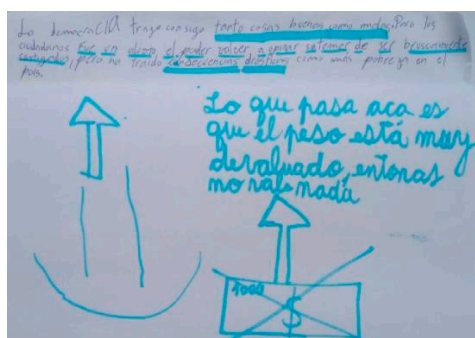 La democracia trajo consigo tanto cosas buenas como malas. Para los
ciudadanos fue un alivio, el poder volver a opinar sin temer de ser bruscamente
pero no traido consecuencias drasticas como mas pobreza en el
país.
Lo que pasa aca es
que el peso está muy
devaluado, entonces
no vale nada
1000
$